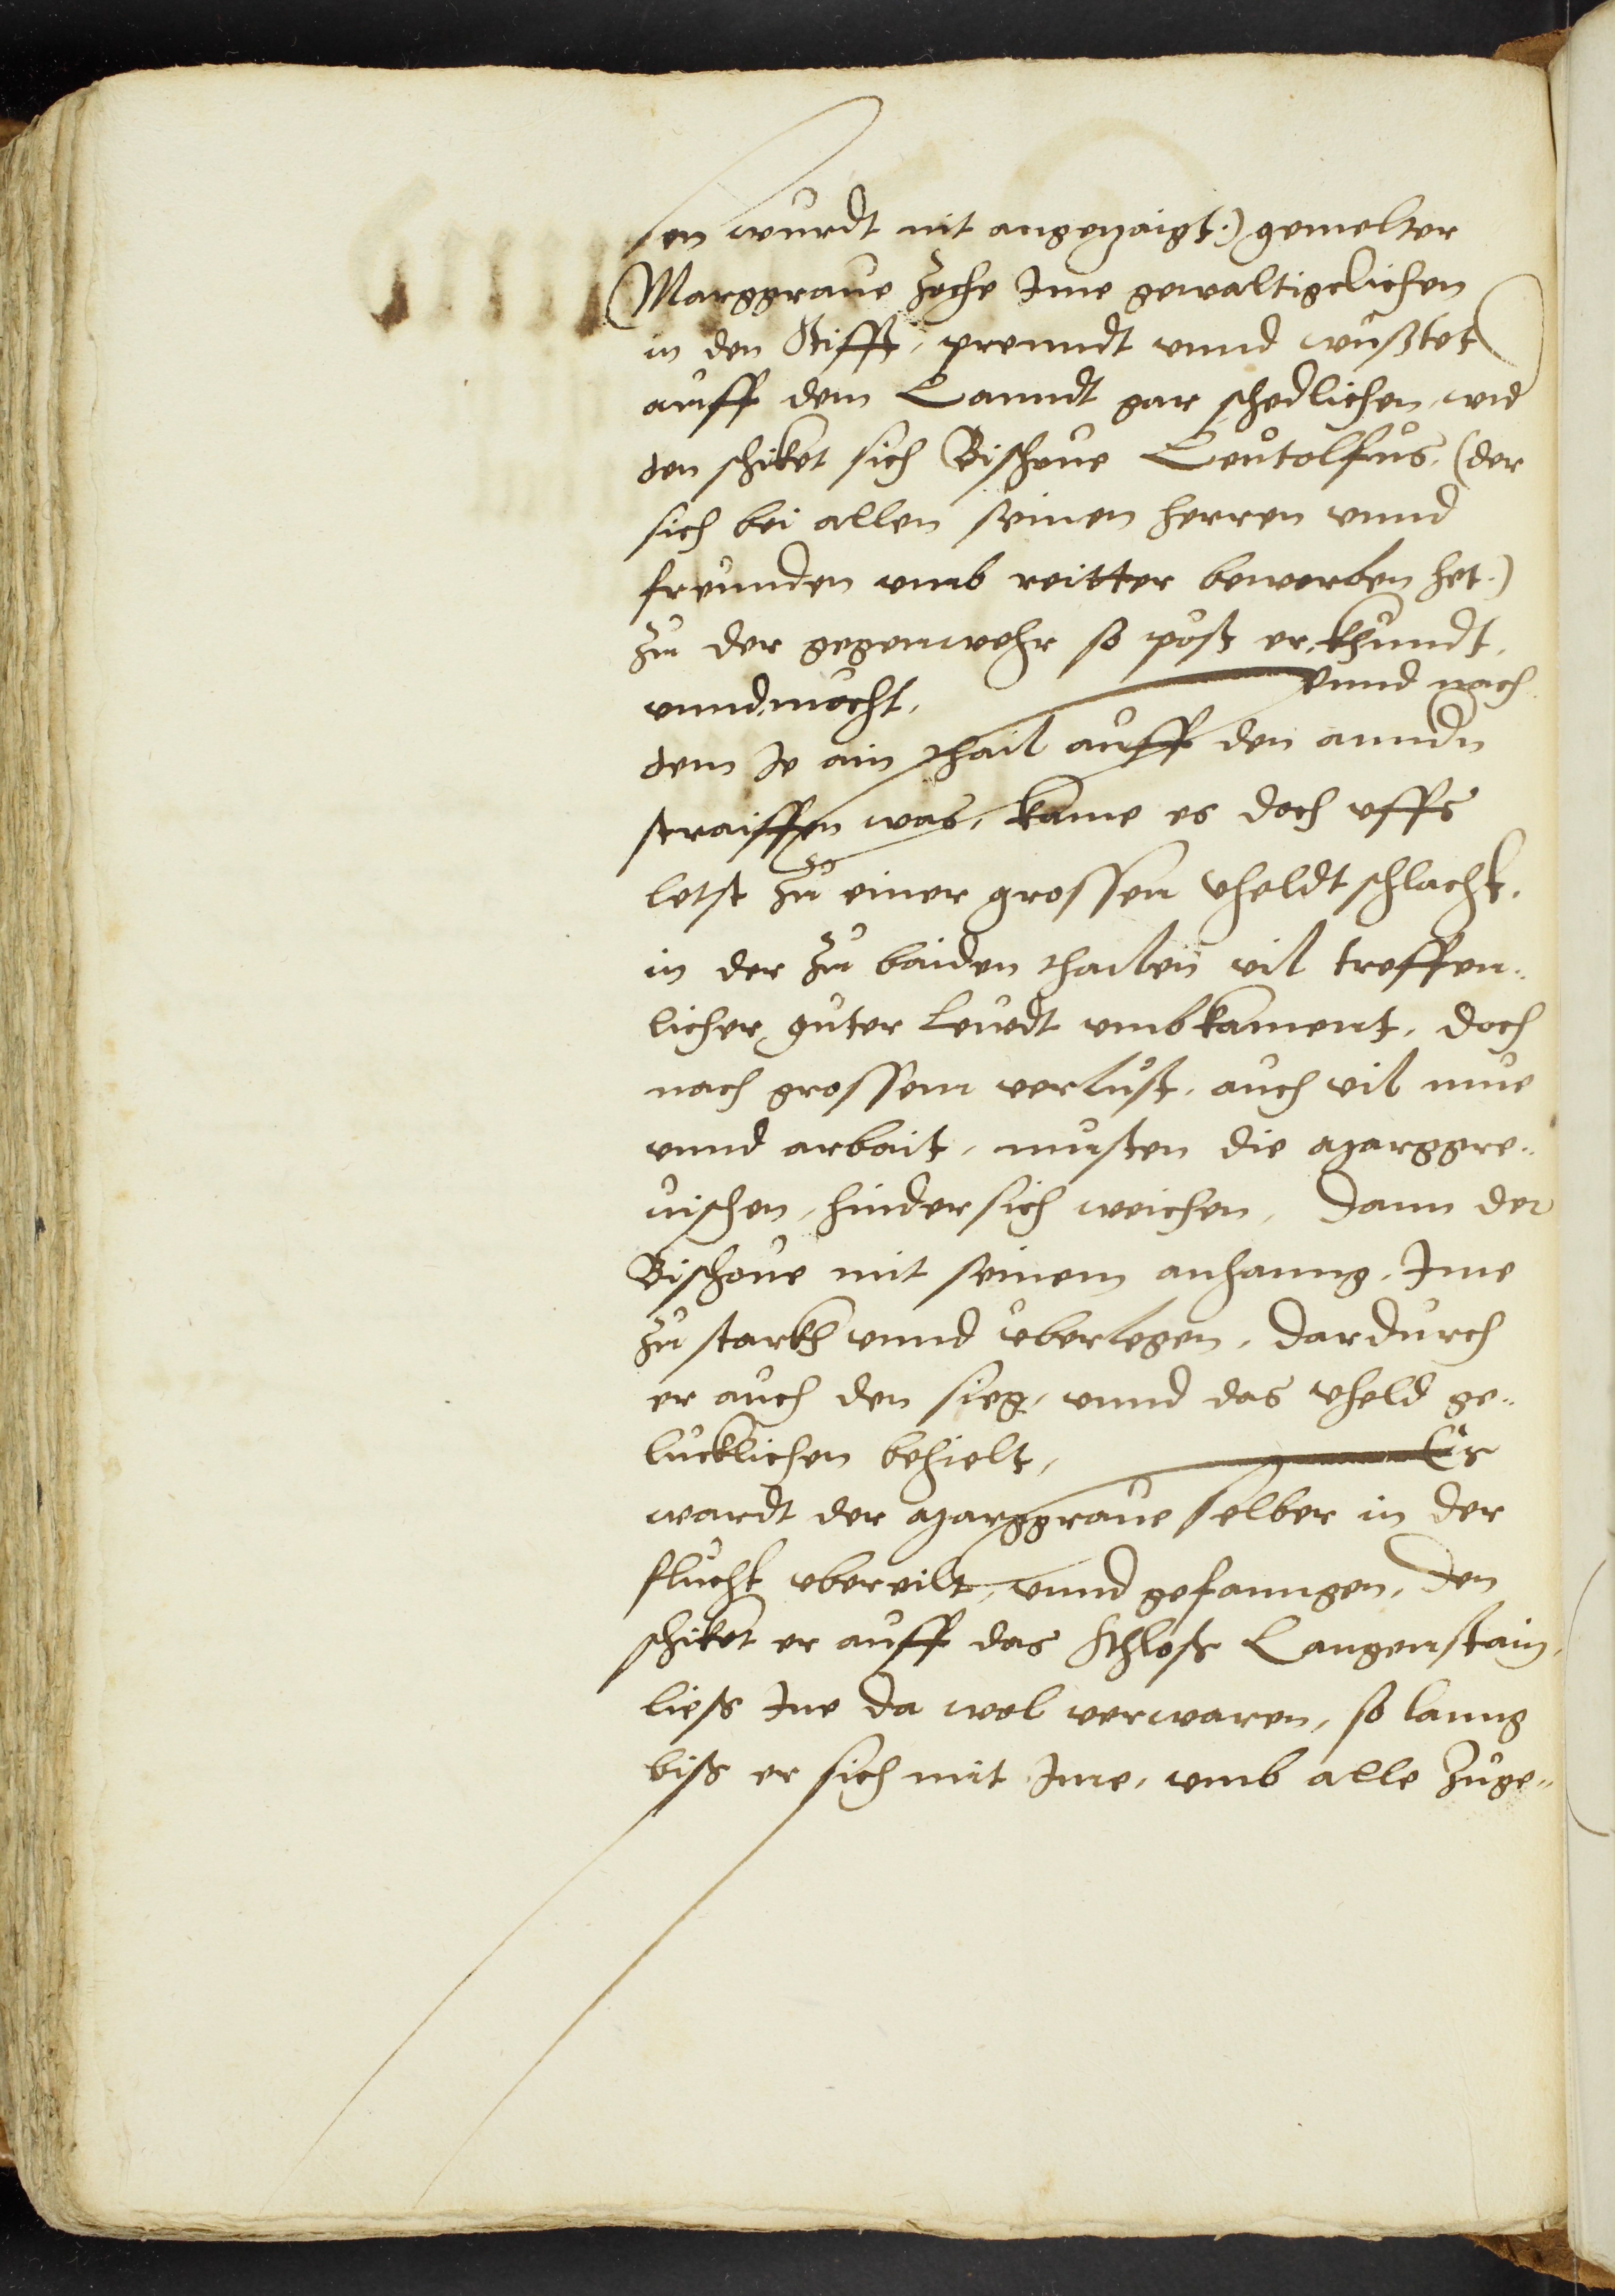 sen wurdt nit angezaigt.) gemelter
Marggraue zoche Ime gewaltigclichen
in den Stifft, prenndt vnnd wüßtet
auff dem Lanndt gar schedlichen, wid
den schiket sich Bischoue Leutolffus, (der
sich bei allen seinen herren vnnd
freunden vmb reitter beworben het.)
zu der gegenwehr so post er, khundt,
vnnd mocht, Vnnd nach
dem Je ain thail auff den anndn
straiffen was, kame es doch vffs
letst zu einer grossen vheldt schlacht,
in der zu baiden thailen vil treffen-
licher guter leuedt vmbkament, doch
nach grossem verlust, auch vil mue
vnnd arbait, musten die Marggre-
uischen, hindersich weichen, dann der
Bischoue mit seinem anhanng, Ime
zu starkh vnnd vberlegen, dardurch
er auch den sieg, vnnd das vheld ge-
lucklichen behielt, Es
wardt der Marggraue selber in der
flucht vbereilt, vnnd gefanngen, den
schiket er auff das Schloß Langenstain,
ließ Ine da wol verwaren, so lanng
biß er sich mit Ime, vmb alle zuge-